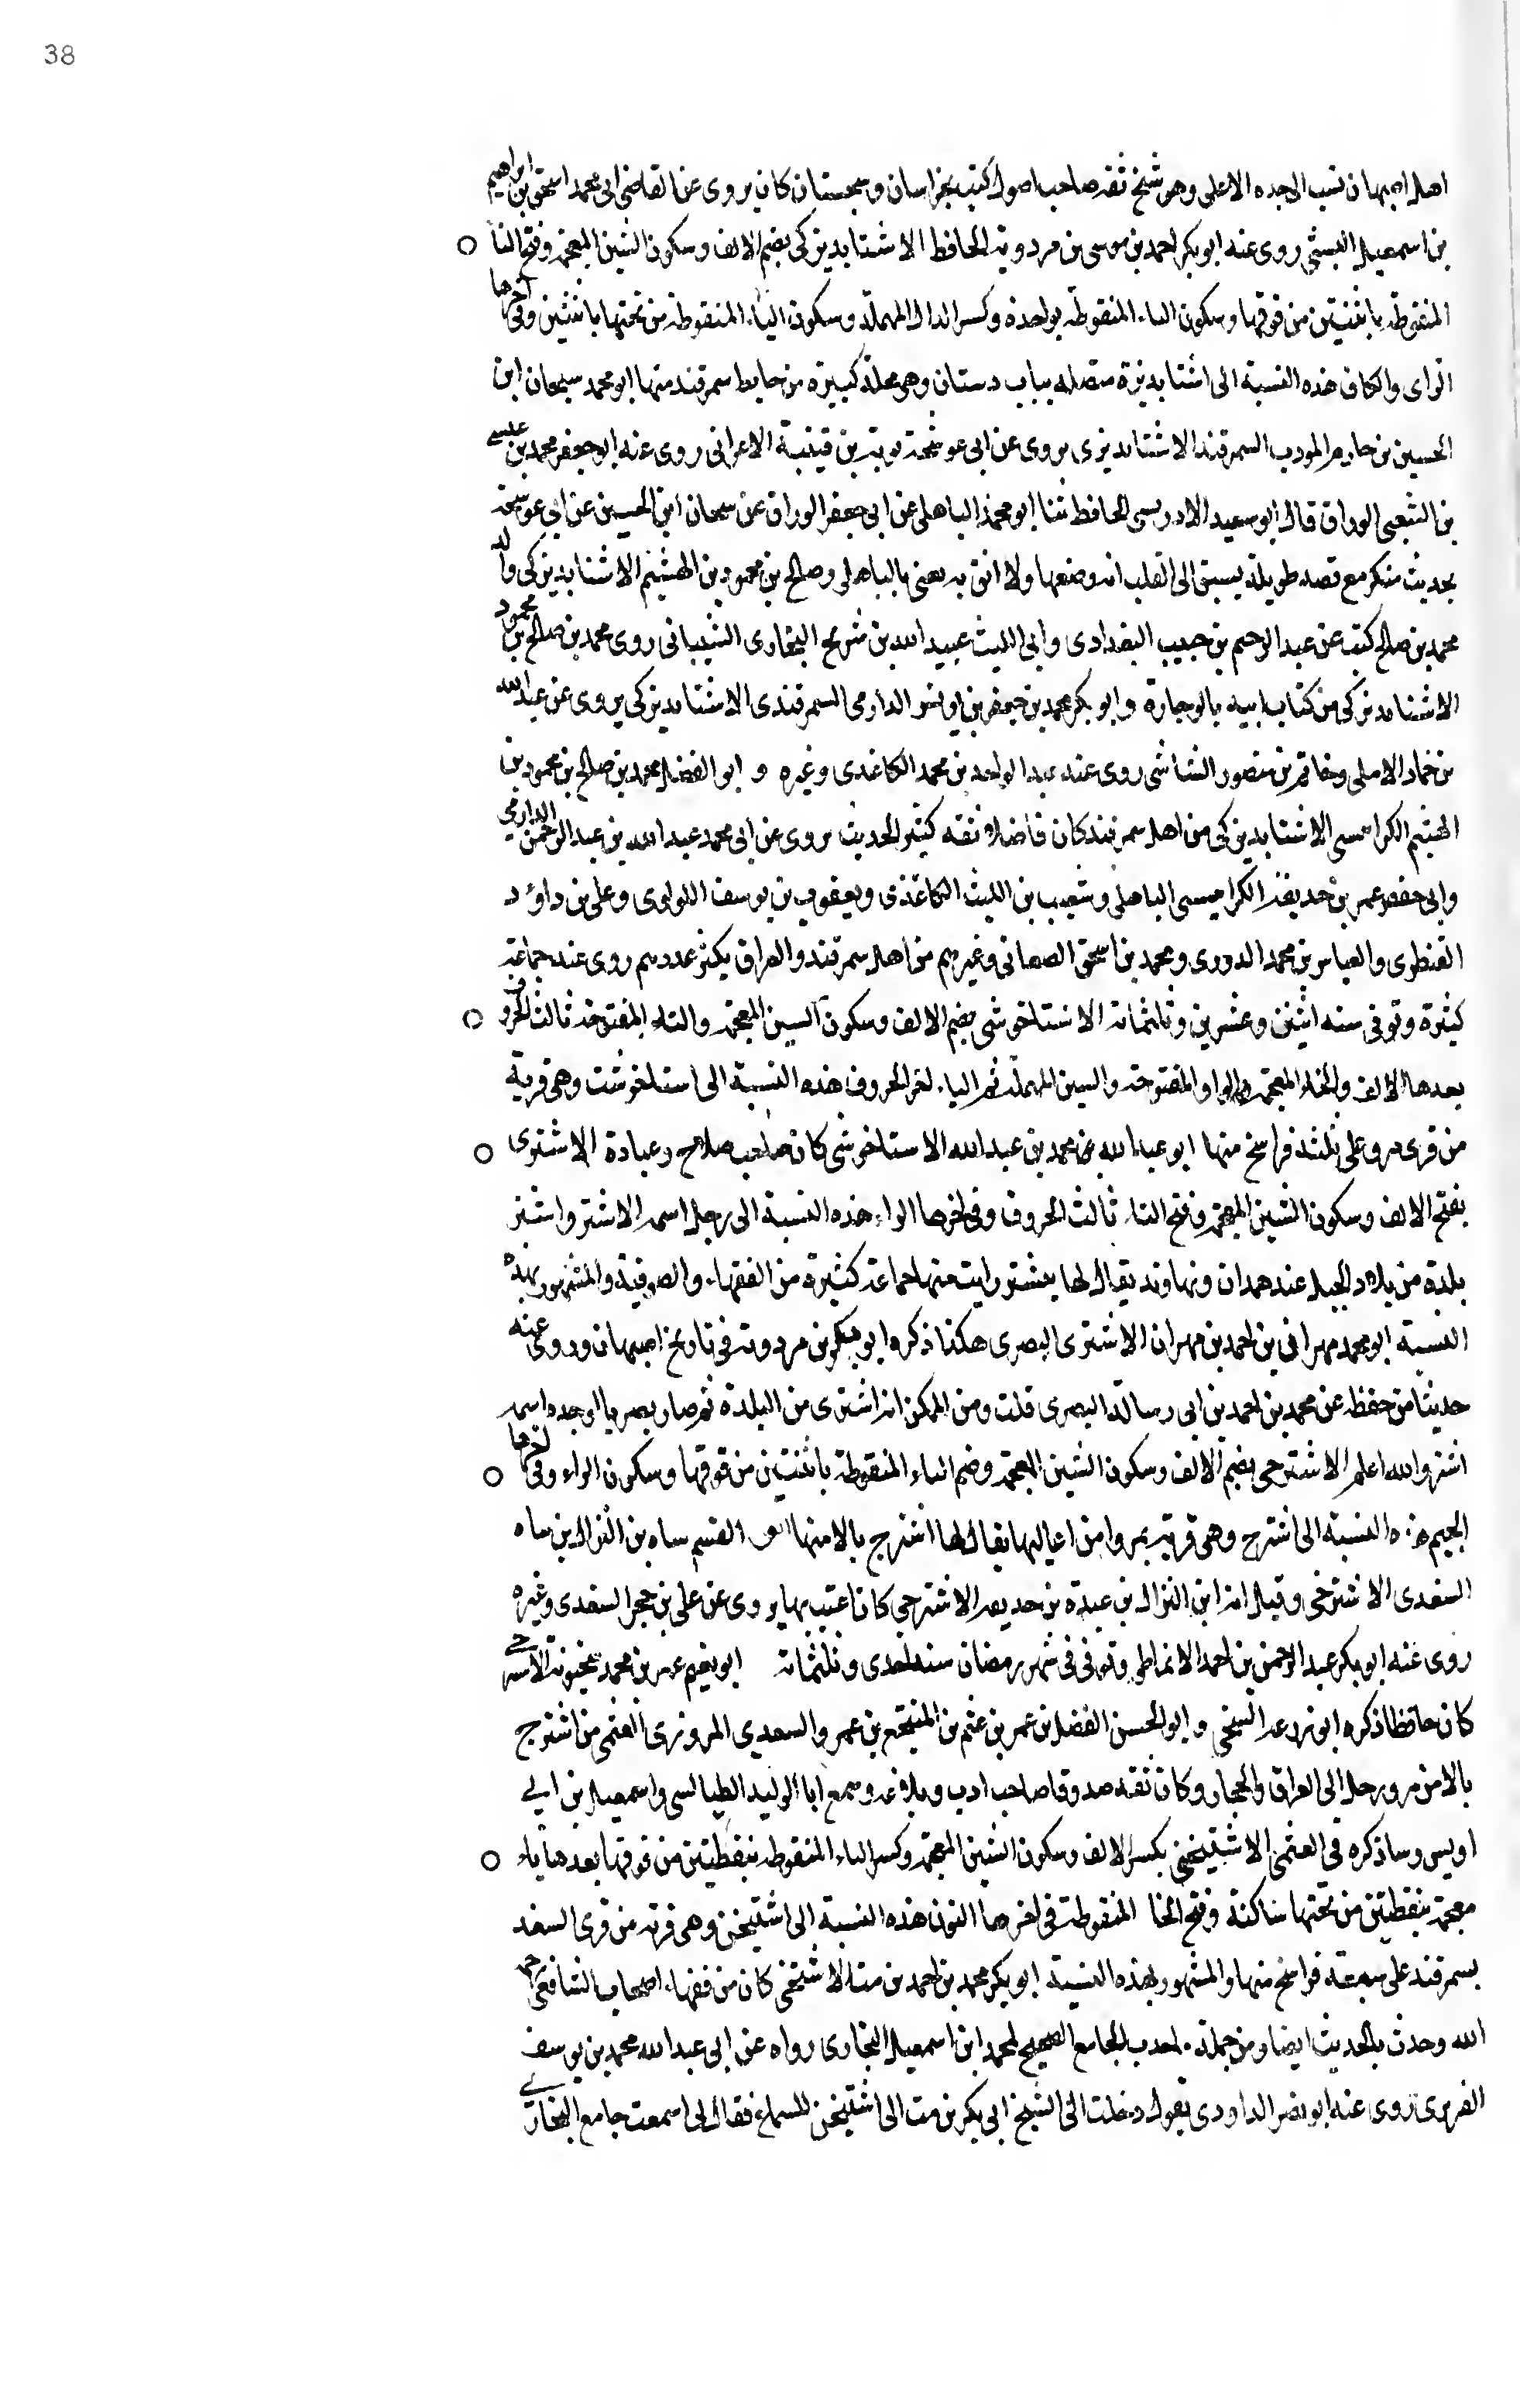 38
اهل اصبهان نسب الى جده الاعلى وهو شيخ ثقه صاحب اصول كتب بخراسان وسجستان كان يروى عن القاضى ابى محمد اسحق بن ابراهيم
بن اسمعيل البستى روى عنه ابو بكر احمد بن موسى بن مردويه الحافظ الاشتابديزكى بضم الالف وسكون الشين المعجمه وفتح التا
المنقوطه باثنتين من فوقها وسكون الباء المنقوطه بواحدة وكسر الدال المهملة وسكون الياء المنقوطة من تحتها باثنتين وفى آخرها
الزاى والكاف هذه النسبة الى اشتابديزة متصله بباب دستان وهى محلة كبيرة من حايط سمرقند منها ابو محمد سبحان ابن
الحسين بن حازم المودب السمرقند الاشتابديزى يروى عن ابى عوسجة توبة بن قتيبة الاعرابى روى عنه ابو جعفر محمد بن عيسى
بن الشعبى الوراق قال ابو سعيد الادريسى الحافظ ثنا ابو محمد الباهلى عن ابى جعفر الوراق عن سبحان ابن الحسين عن ابى عوسجه
بحديث منكر مع قصه طويلة يسبق الى القلب انه وضعها ولا اثق به يعنى بالباهلى وصالح بن محمود بن الهيثم الاشتابديزكى والد
محمد بن صالح كتب عن عبد الرحيم بن حبيب البغدادى وابى الليث عبيد الله بن شريح البخارى الشيبانى روى محمد بن صالح بن محمود
الاشتابديزكى من كتاب ابيه بالوجازة وابو بكر محمد بن جعفر بن اونو الدارمى السمرقندى الاشتابديزكى يروى عن عبد الله
بن حماد الاملى وخاقم بن منصور الشاشى روى عنه عبد الواحد بن محمد الكاغدى وغيره و ابو الفضل محمد بن صالح بن محمود بن
الهيثم الكرابيسى الاشتابديزكى من اهل سمرقند كان فاضلا ثقه كثير الحديث يروى عن ابى محمد عبد الله بن عبد الرحمن الدارمى
وابى حفص عمر بن حذيفة الكرابيسى الباهلى وشعيب بن الليث الكاغذى ويعقوب بن يوسف اللولوى وعلى بن داوٗد
القنطرى والعباس بن محمد الدورى ومحمد بن اسحق الصغانى وغيرهم من اهل سمرقند والعراق يكثر عددهم روى عنه جماعة
كثيرة وتوفى سنه اثنين وعشرين وثلثمائة الاشتاخوشى بضم الالف وسكون السين المعجمه والتاء المفتوحة ثالث الحروف
بعدها الالف والخاء المعجمه والواو المفتوحة والسين المهملة ثم الياء اخر الحروف هذه النسبة الى استاخوشت وهى قرية
من قرى مرو على ثلثة فراسخ منها ابو عبد الله محمد بن عبد الله الاستاخوشى كان صاحب صلاح وعبادة الاشترى
بفتح الالف وسكون الشين المعجمه وفتح التاء ثالث الحروف وفى اخرها الراء هذه النسبة الى رجل اسمه الاشتر واشتر
بلدة من بلاد الجبل عند همدان ونهاوند يقال لها يشتر رايت منها جماعة كثيرة من الفقهاء والصوفية والمشهور بهذه
النسبة ابو محمد مهرانى بن احمد بن مهران الاشترى البصرى هكذا ذكره ابو بكر بن مردويه فى تاريخ اصبهان وروى عنه
حديثا من حفظه عن محمد بن احمد بن ابى رسالة البصرى قلت ومن الممكن انه اشترى من البلدة ثم صار بصريا او جده اسمه
اشتر والله اعلم الاشترجى بضم الالف وسكون الشين المعجمه وضم التاء المنقوطة باثنتين من فوقها وسكون الراء وفى اخرها
الجيم هذه النسبة الى اشترج وهى قرية بمرو من اعاليها يقال لها اشترج بالا منها ابو القسم ساه بن النزال بن ساه
السعدى الاشترجى وقيل انه ابن النزال بن عبدة بن حذيفه الاشترجى كان عتب بها يروى عن على بن حجر السعدى وغيره
روى عنه ابو بكر عبد الرحمن بن احمد الانماطى وتوفى فى شهر رمضان سنه احدى وثلثمائة ابو نعيم عمر بن محمد الاشترجى
كان حافظا ذكره ابو زرعه السنجى و ابو الحسن الفضل بن عمر بن عثم بن المنتجع بن عمرو السعدي المروزى العثمى من اشترج
بالا من مرو رحل الى العراق والحجاز وكان ثقه صدوقا صاحب ادب وبلاغه وسمع ابا الوليد الطيالسى واسمعيل بن ابى
اويس وساذكره فى العثمى الاشتيخنى بكسر الالف وسكون الشين المعجمه وكسر التاء المنقوطه بنقطتين من فوقها بعدها ياء
معجمه بنقطتين من تحتها ساكنة وفتح الخا المنقوطة فى اخرها النون هذه النسبة الى اشتيخن وهى قرية من قرى السغد
بسمرقند على سبعة فراسخ منها والمشهور بهذه النسبة ابو بكر محمد بن احمد بن مت الاشتيخنى كان من فقهاء اصحاب الشافعى رحمه
الله وحدث بالحديث ايضا ومن جملة الجامع الصحيح لمحمد ابن اسمعيل البخارى رواه عن ابى عبد الله محمد بن يوسف
الفربرى روى عنه ابو نصر الداودى يقول دخلت الى الشيخ ابى بكر بن مت الى اشتيخن للسماع فقال لى اسمعت جامع البخارى